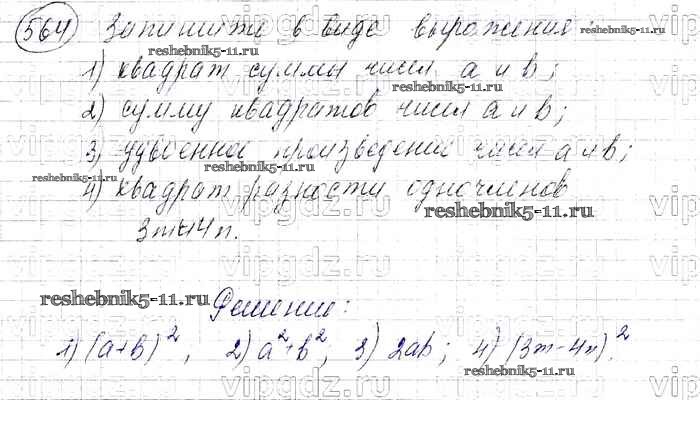 564 Запишите в виде выражения:
reshebnik5-11.ru
reshebnik5-11.ru
1) квадрат суммы чисел a и b;
reshebnik5-11.ru
2) сумму квадратов чисел a и b;
3) удвоенное произведение чисел a и b;
reshebnik5-11.ru
reshebnik5-11.ru
4) квадрат разности одночленов
reshebnik5-11.ru
3m и 4n.
reshebnik5-11.ru
Решение:
1) (a+b)², 2) a²+b², 3) 2ab; 4) (3m-4n)².
reshebnik5-11.ru
vipgdz.ru